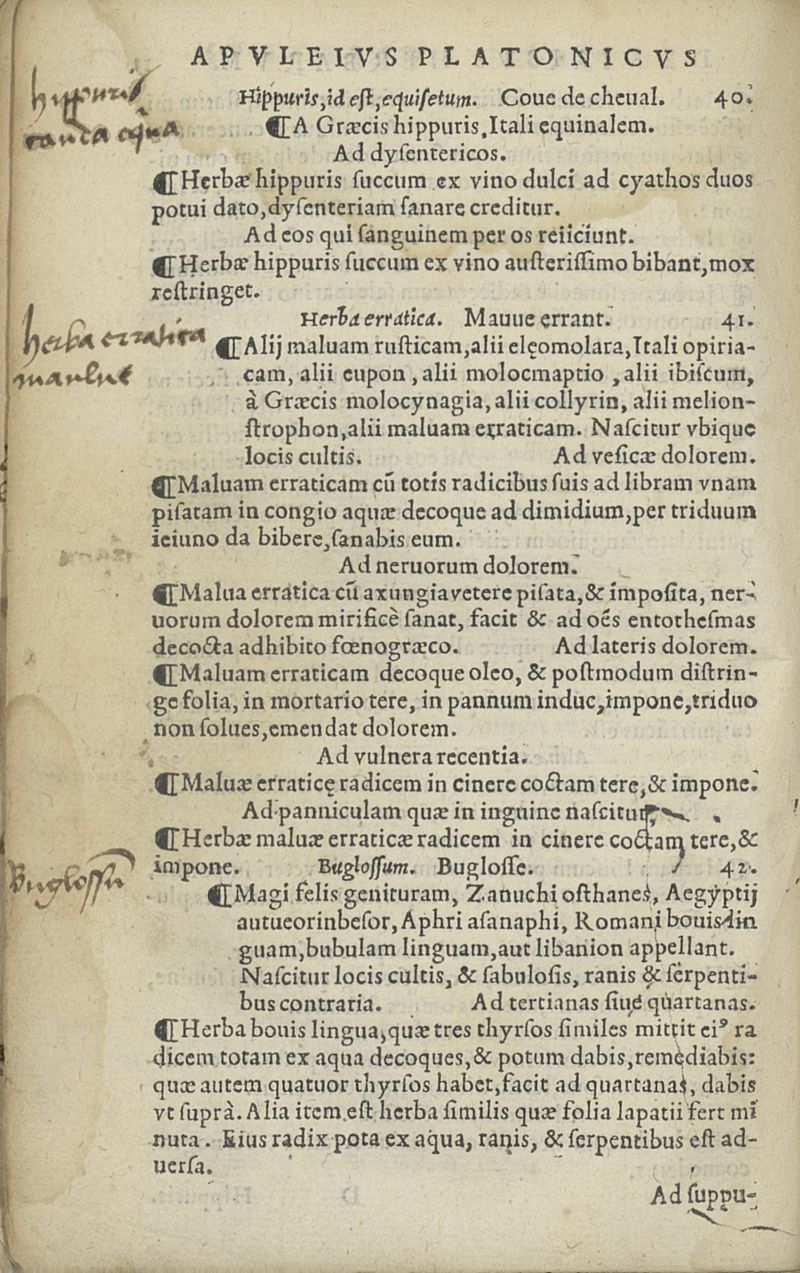 APVLEIVS PLATONICVS
hippuris
cauda equa
Hippuris, id est, equisetum. Coue de cheual. 40.
¶A Græcis hippuris, Itali equinalem.
Ad dysentericos.
¶Herbæ hippuris succum ex vino dulci ad cyathos duos
potui dato, dysenteriam sanare creditur.
Ad eos qui sanguinem per os reiiciunt.
¶Herbæ hippuris succum ex vino austerissimo bibant, mox
restringet.
Herba erratica. Mauue errant. 41.
herba erratica
maulue
¶Alij maluam rusticam, alii elęomolara, Itali opiria-
cam, alii cupon, alii molocmaptio, alii ibiscum,
à Græcis molocynagia, alii collyrin, alii melion-
strophon, alii maluam erraticam. Nascitur vbique
locis cultis. Ad vesicæ dolorem.
¶Maluam erraticam cū totis radicibus suis ad libram vnam
pisatam in congio aquæ decoque ad dimidium, per triduum
ieiuno da bibere, sanabis eum.
Ad neruorum dolorem.
¶Malua erratica cū axungia vetere pisata, & imposita, ner-
uorum dolorem mirificè sanat, facit & ad oēs entothesmas
decocta adhibito fœnogræco. Ad lateris dolorem.
¶Maluam erraticam decoque oleo, & postmodum distrin-
ge folia, in mortario tere, in pannum induc, impone, triduo
non solues, emendat dolorem.
Ad vulnera recentia.
¶Maluæ erraticę radicem in cinere coctam tere, & impone.
Ad panniculam quæ in inguine nascitur.
¶Herbæ maluæ erraticæ radicem in cinere coctam tere, &
impone. Buglossum. Buglosse. 42.
Buglossū
¶Magi felis genituram, Zanuchi osthanes, Aegyptij
autueorinbesor, Aphri asanaphi, Romani bouis lin
guam, bubulam linguam, aut libanion appellant.
Nascitur locis cultis, & sabulosis, ranis & serpenti-
bus contraria. Ad tertianas siue quartanas.
¶Herba bouis lingua, quæ tres thyrsos similes mittit eiꝰ ra
dicem totam ex aqua decoques, & potum dabis, remediabis:
quæ autem quatuor thyrsos habet, facit ad quartanas, dabis
vt suprà. Alia item est herba similis quæ folia lapatii fert mi
nuta. Eius radix pota ex aqua, ranis, & serpentibus est ad-
uersa.
Ad suppu-